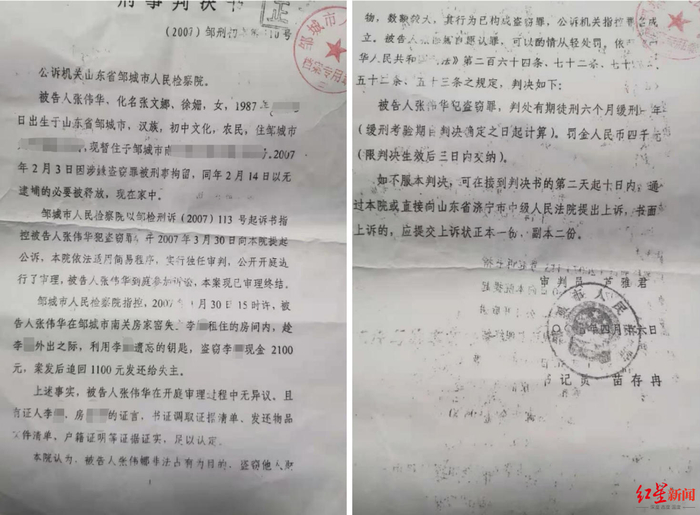 刑事判决书
正
（2007）邹刑初
公诉机关山东省邹城市人民检察院。
被告人张伟华，化名张文娜、徐娟，女，1987年
日出生于山东省邹城市，汉族，初中文化，农民，住邹城市
，现暂住于邹城市南 2007
年2月3日因涉嫌盗窃罪被刑事拘留，同年2月14日以无
逮捕的必要被释放，现在家中。
邹城市人民检察院以邹检刑诉（2007）113号起诉书指
控被告人张伟华犯盗窃罪，于2007年3月30日向本院提起
公诉。本院依法适用简易程序，实行独任审判，公开开庭进
行了审理，被告人张伟华到庭参加诉讼，本案现已审理终结。
邹城市人民检察院指控，2007年 月30日15时许，被
告人张伟华在邹城市南关房家窑失、李 租住的房间内，趁
李 外出之际，利用李 遗忘的钥匙，盗窃李 现金2100
元，案发后追回1100元发还给失主。
上述事实，被告人张伟华在开庭审理过程中无异议，且
有证人李 、房 的证言，书证调取证据清单、发还物品
文件清单、户籍证明等证据证实，足以认定。
本院认为，被告人张伟 非法占有为目的，盗窃他人财
1
物，数额较大，其行为已构成盗窃罪，公诉机关指控 成
立。被告人张 自愿认罪，可以酌情从轻处罚，依
华人民共和 法》第二百六十四条、七十二条、七十
五十二条、五十三条之规定，判决如下：
被告人张伟华犯盗窃罪，判处有期徒刑六个月缓刑一年
（缓刑考验期自判决确定之日起计算）。罚金人民币四千元
（限判决生效后三日内交纳）。
如不服本判决，可在接到判决书的第二天起十日内，通
过本院或直接向山东省济宁市中级人民法院提出上诉，书面
上诉的，应提交上诉状正本一份，副本二份。
审判员 芦雅君
年四月 六日
书记员 苗存冉
红星新闻